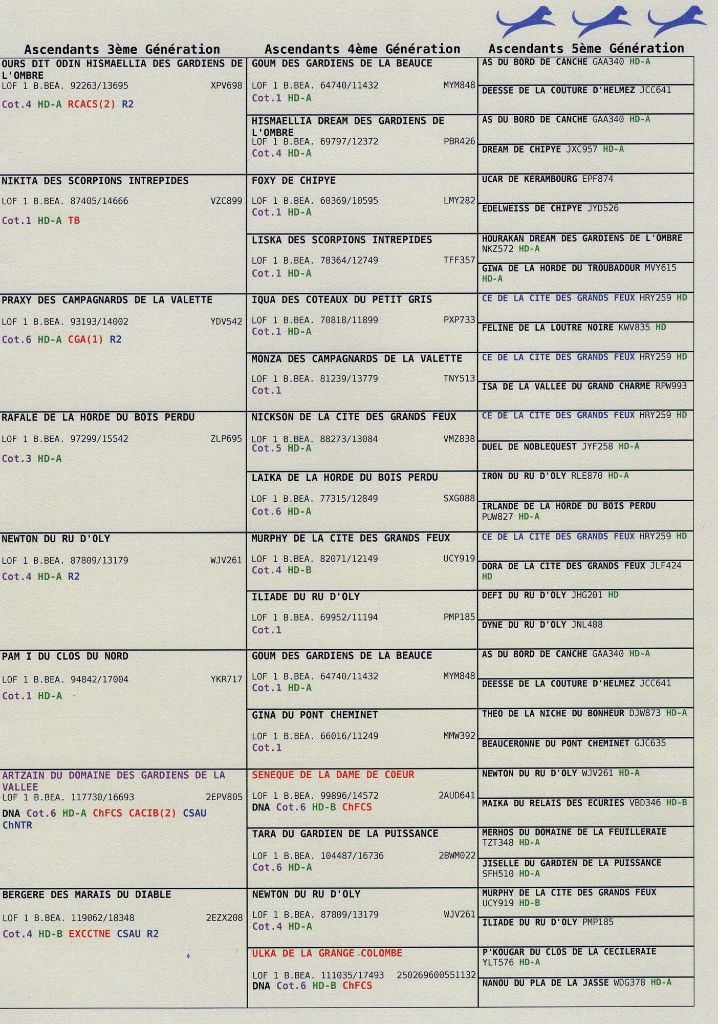 Ascendants 3ème Génération
Ascendants 4ème Génération
Ascendants 5ème Génération
OURS DIT ODIN HISMAELLIA DES GARDIENS DE
L'OMBRE
LOF 1 B.BEA. 92263/13695 XPV698
Cot.4 HD-A RCACS(2) R2
GOUM DES GARDIENS DE LA BEAUCE
LOF 1 B.BEA. 64740/11432 MYM848
Cot.1 HD-A
AS DU BORD DE CANCHE GAA340 HD-A
DEESSE DE LA COUTURE D'HELMEZ JCC641
HISMAELLIA DREAM DES GARDIENS DE
L'OMBRE
LOF 1 B.BEA. 69797/12372 PBR426
Cot.4 HD-A
AS DU BORD DE CANCHE GAA340 HD-A
DREAM DE CHIPYE JXC957 HD-A
NIKITA DES SCORPIONS INTREPIDES
LOF 1 B.BEA. 87405/14666 VZC899
Cot.1 HD-A TB
FOXY DE CHIPYE
LOF 1 B.BEA. 60369/10595 LMY282
Cot.1 HD-A
UCAR DE KERAMBOURG EPF874
EDELWEISS DE CHIPYE JYD526
LISKA DES SCORPIONS INTREPIDES
LOF 1 B.BEA. 78364/12749 TFF357
Cot.1 HD-A
HOURAKAN DREAM DES GARDIENS DE L'OMBRE
NKZ572 HD-A
GIWA DE LA HORDE DU TROUBADOUR MVY615
HD-A
PRAXY DES CAMPAGNARDS DE LA VALETTE
LOF 1 B.BEA. 93193/14002 YDV542
Cot.6 HD-A CGA(1) R2
IQUA DES COTEAUX DU PETIT GRIS
LOF 1 B.BEA. 70818/11899 PXP733
Cot.1 HD-A
CE DE LA CITE DES GRANDS FEUX HRY259 HD
FELINE DE LA LOUTRE NOIRE KWV835 HD
MONZA DES CAMPAGNARDS DE LA VALETTE
LOF 1 B.BEA. 81239/13779 TNY513
Cot.1
CE DE LA CITE DES GRANDS FEUX HRY259 HD
ISA DE LA VALLEE DU GRAND CHARME RPW993
RAFALE DE LA HORDE DU BOIS PERDU
LOF 1 B.BEA. 97299/15542 ZLP695
Cot.3 HD-A
NICKSON DE LA CITE DES GRANDS FEUX
LOF 1 B.BEA. 88273/13084 VMZ838
Cot.5 HD-A
CE DE LA CITE DES GRANDS FEUX HRY259 HD
DUEL DE NOBLEQUEST JYF258 HD-A
LAIKA DE LA HORDE DU BOIS PERDU
LOF 1 B.BEA. 77315/12849 SXG088
Cot.6 HD-A
IRON DU RU D'OLY RLE870 HD-A
IRLANDE DE LA HORDE DU BOIS PERDU
PUW827 HD-A
NEWTON DU RU D'OLY
LOF 1 B.BEA. 87809/13179 WJV261
Cot.4 HD-A R2
MURPHY DE LA CITE DES GRANDS FEUX
LOF 1 B.BEA. 82071/12149 UCY919
Cot.4 HD-B
CE DE LA CITE DES GRANDS FEUX HRY259 HD
DORA DE LA CITE DES GRANDS FEUX JLF424
HD
ILIADE DU RU D'OLY
LOF 1 B.BEA. 69952/11194 PMP185
Cot.1
DEFI DU RU D'OLY JHG201 HD
DYNE DU RU D'OLY JNL488
PAM I DU CLOS DU NORD
LOF 1 B.BEA. 94842/17004 YKR717
Cot.1 HD-A
GOUM DES GARDIENS DE LA BEAUCE
LOF 1 B.BEA. 64740/11432 MYM848
Cot.1 HD-A
AS DU BORD DE CANCHE GAA340 HD-A
DEESSE DE LA COUTURE D'HELMEZ JCC641
GINA DU PONT CHEMINET
LOF 1 B.BEA. 66016/11249 MMW392
Cot.1
THEO DE LA NICHE DU BONHEUR DJW873 HD-A
BEAUCERONNE DU PONT CHEMINET GJC635
ARTZAIN DU DOMAINE DES GARDIENS DE LA
VALLEE
LOF 1 B.BEA. 117730/16693 2EPV805
DNA Cot.6 HD-A ChFCS CACIB(2) CSAU
ChNTR
SENEQUE DE LA DAME DE COEUR
LOF 1 B.BEA. 99896/14572 2AUD641
DNA Cot.6 HD-B ChFCS
NEWTON DU RU D'OLY WJV261 HD-A
MAIKA DU RELAIS DES ECURIES VBD346 HD-B
TARA DU GARDIEN DE LA PUISSANCE
LOF 1 B.BEA. 104487/16736 2BWM022
Cot.6 HD-A
MERHOS DU DOMAINE DE LA FEUILLERAIE
TZT348 HD-A
JISELLE DU GARDIEN DE LA PUISSANCE
SFH510 HD-A
BERGERE DES MARAIS DU DIABLE
LOF 1 B.BEA. 119062/18348 2EZX208
Cot.4 HD-B EXCCTNE CSAU R2
NEWTON DU RU D'OLY
LOF 1 B.BEA. 87809/13179 WJV261
Cot.4 HD-A
MURPHY DE LA CITE DES GRANDS FEUX
UCY919 HD-B
ILIADE DU RU D'OLY PMP185
ULKA DE LA GRANGE COLOMBE
LOF 1 B.BEA. 111035/17493 250269600551132
DNA Cot.6 HD-B ChFCS
P'KOUGAR DU CLOS DE LA CECILERAIE
YLT576 HD-A
NANOU DU PLA DE LA JASSE WDG378 HD-A